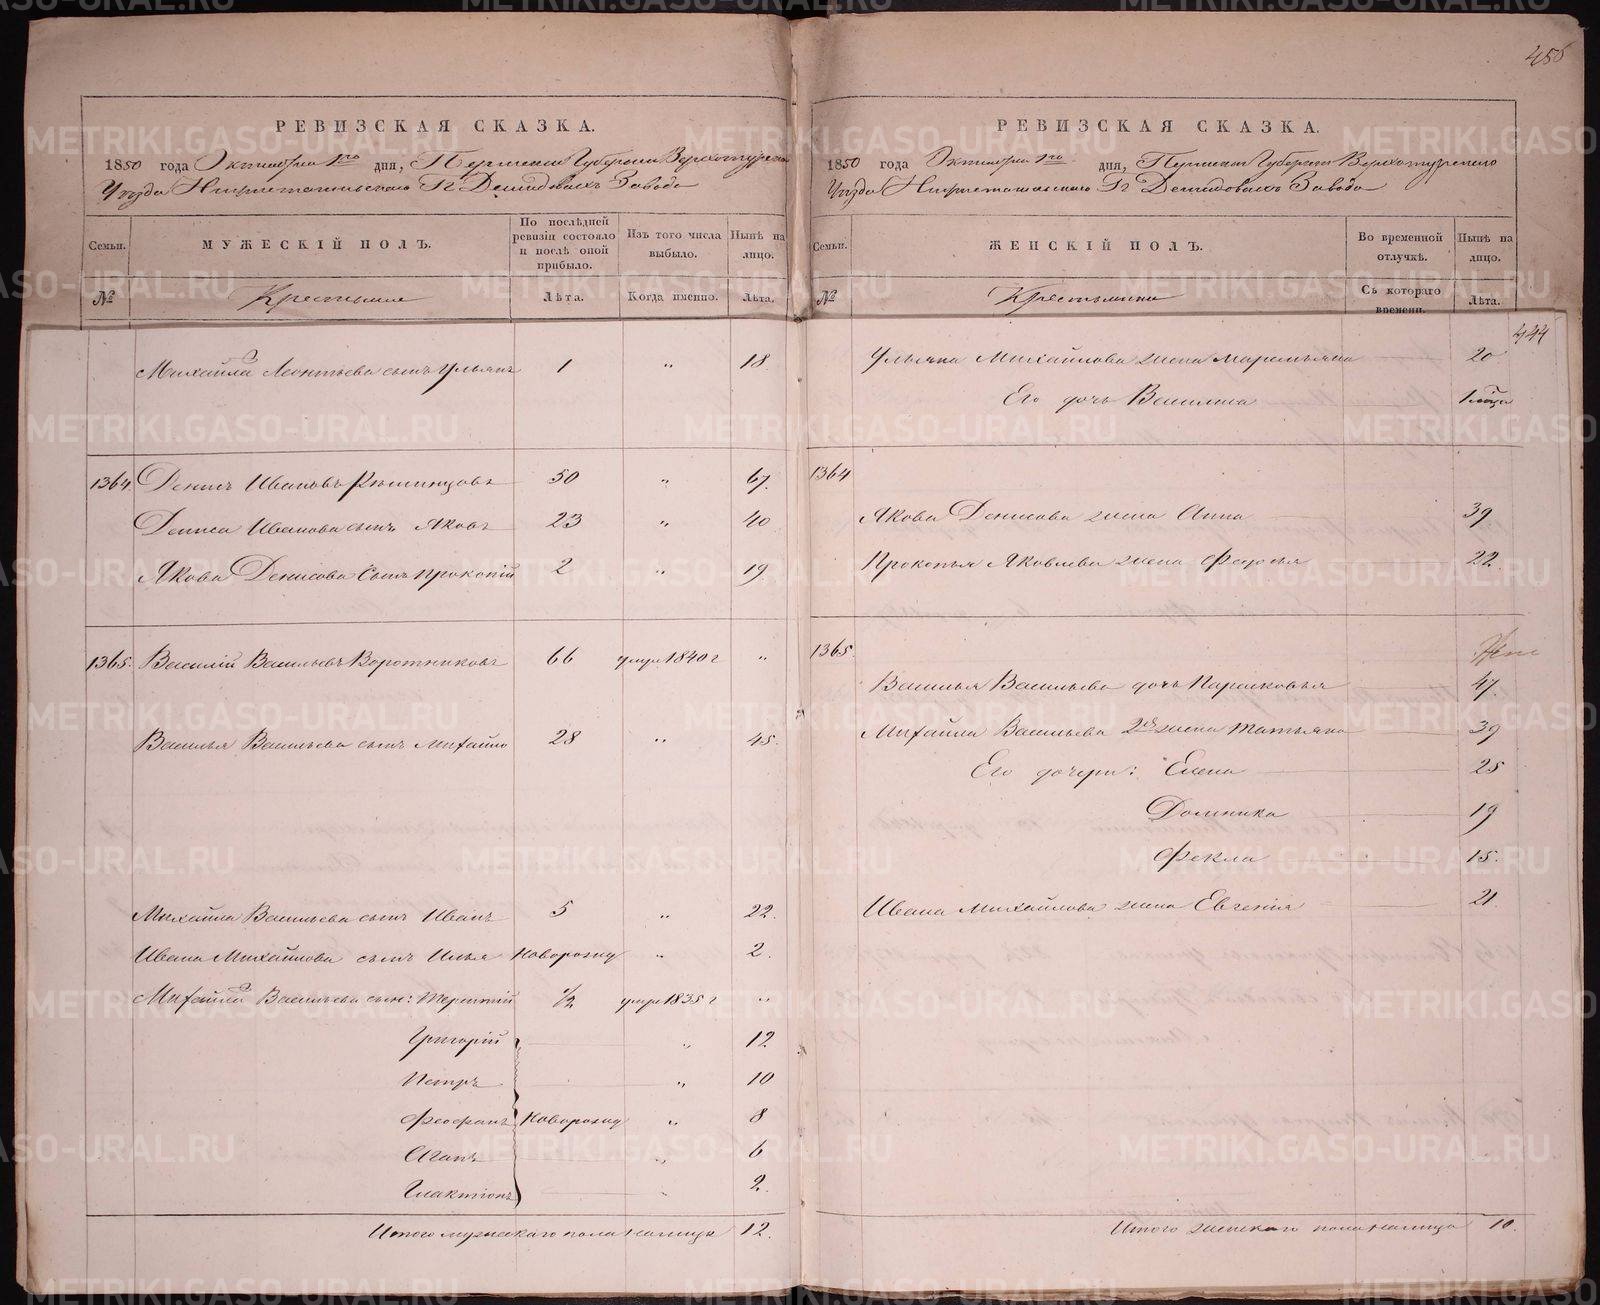 456
РЕВИЗСКАЯ СКАЗКА.
1850 года Октября 1го дня, Пермской Губернии Верхотурскаго
Уѣзда Нижнетагильскаго Гг Демидовыхъ Завода
Семьи.
МУЖЕСКІЙ ПОЛЪ.
По послѣдней ревизіи состояло и послѣ оной прибыло.
Изъ того числа выбыло.
Нынѣ на лицо.
№
Крестьяне
Лѣта.
Когда именно.
Лѣта.
Михайла Леонтьева сынъ Ульянъ 1 " 18
1364. Денисъ Ивановъ 50 " 67.
Дениса Иванова сынъ Яковъ 23 " 40
Якова Денисова сынъ Прокопій 2 " 19
1365. Василій Васильевъ Воротниковъ 66 умре 1840 г "
Василья Васильева сынъ Михайло 28 " 45.
Михайла Васильева сынъ Иванъ 5 " 22.
Ивана Михайлова сынъ Илья Новорожд " 2.
Михайлы Васильева сын: Терентий 1/2 умре 1835 г "
Григорій " 12
Петръ " 10
Феофанъ Новорожд " 8
Агапъ " 6
Галактіонъ " 2.
Итого мужескаго пола налицо 12.
РЕВИЗСКАЯ СКАЗКА.
1850 года Октября 1го дня, Пермской Губерніи Верхотурскаго
Уѣзда Нижнетагильскаго Гг Демидовыхъ Завода
Семьи.
ЖЕНСКІЙ ПОЛЪ.
Во временной отлучкѣ.
Нынѣ на лицо.
№
Крестьянки
Съ котораго времени.
Лѣта.
444
Ульяна Михайлова жена Маремьяна 20
Его дочь Василиса 1 мѣся
1364
Якова Денисова жена Анна 39
Прокопья Яковлева жена Федосья 22.
1365
Василья Васильева дочь Парасковья 47.
Михайла Васильева 2я жена Татьяна 39
Его дочери: Елена 25
Домника 19
Фекла 15.
Ивана Михайлова жена Евгенія 21
Итого женскаго пола налицо 10.
METRIKI.GASO-URAL.RU